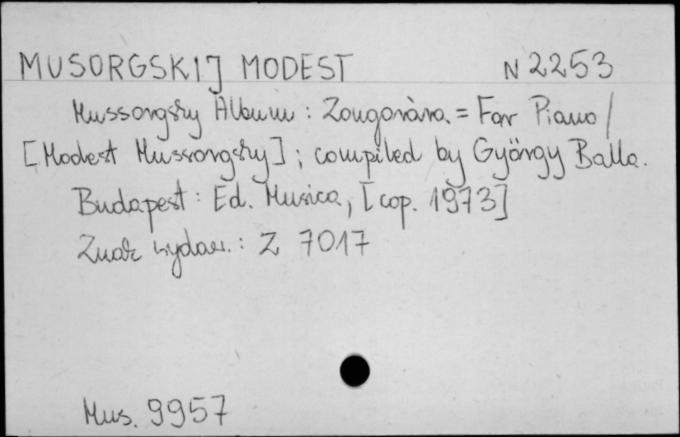 MUSORGSKIJ MODEST N 2253
Mussorgsky Album : Zongorára = For Piano /
[Modest Mussorgsky] ; compiled by György Balla.
Budapest : Ed. Musica, [cop. 1973]
Znak wydaw. : Z 7017
Mus. 9957